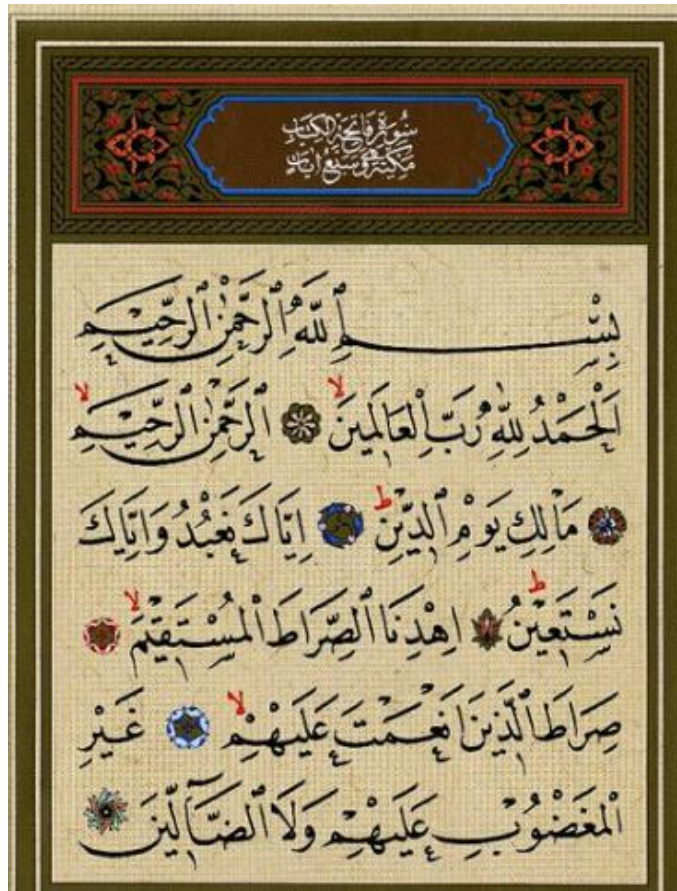 سُورَةُ فَاتِحَةِ الْكِتَابِ
مَكِّيَّةٌ وَهِيَ سَبْعُ اٰيَاتٍ
بِسْمِ اللّٰهِ الرَّحْمٰنِ الرَّحِيمِ
اَلْحَمْدُ لِلّٰهِ رَبِّ الْعَالَمِينَۙ اَلرَّحْمٰنِ الرَّحِيمِۙ
مَالِكِ يَوْمِ الدِّينِۜ اِيَّاكَ نَعْبُدُ وَاِيَّاكَ
نَسْتَعِينُۜ اِهْدِنَا الصِّرَاطَ الْمُسْتَقِيمَۙ
صِرَاطَ الَّذِينَ اَنْعَمْتَ عَلَيْهِمْۙ غَيْرِ
الْمَغْضُوبِ عَلَيْهِمْ وَلَا الضَّٓالِّينَ